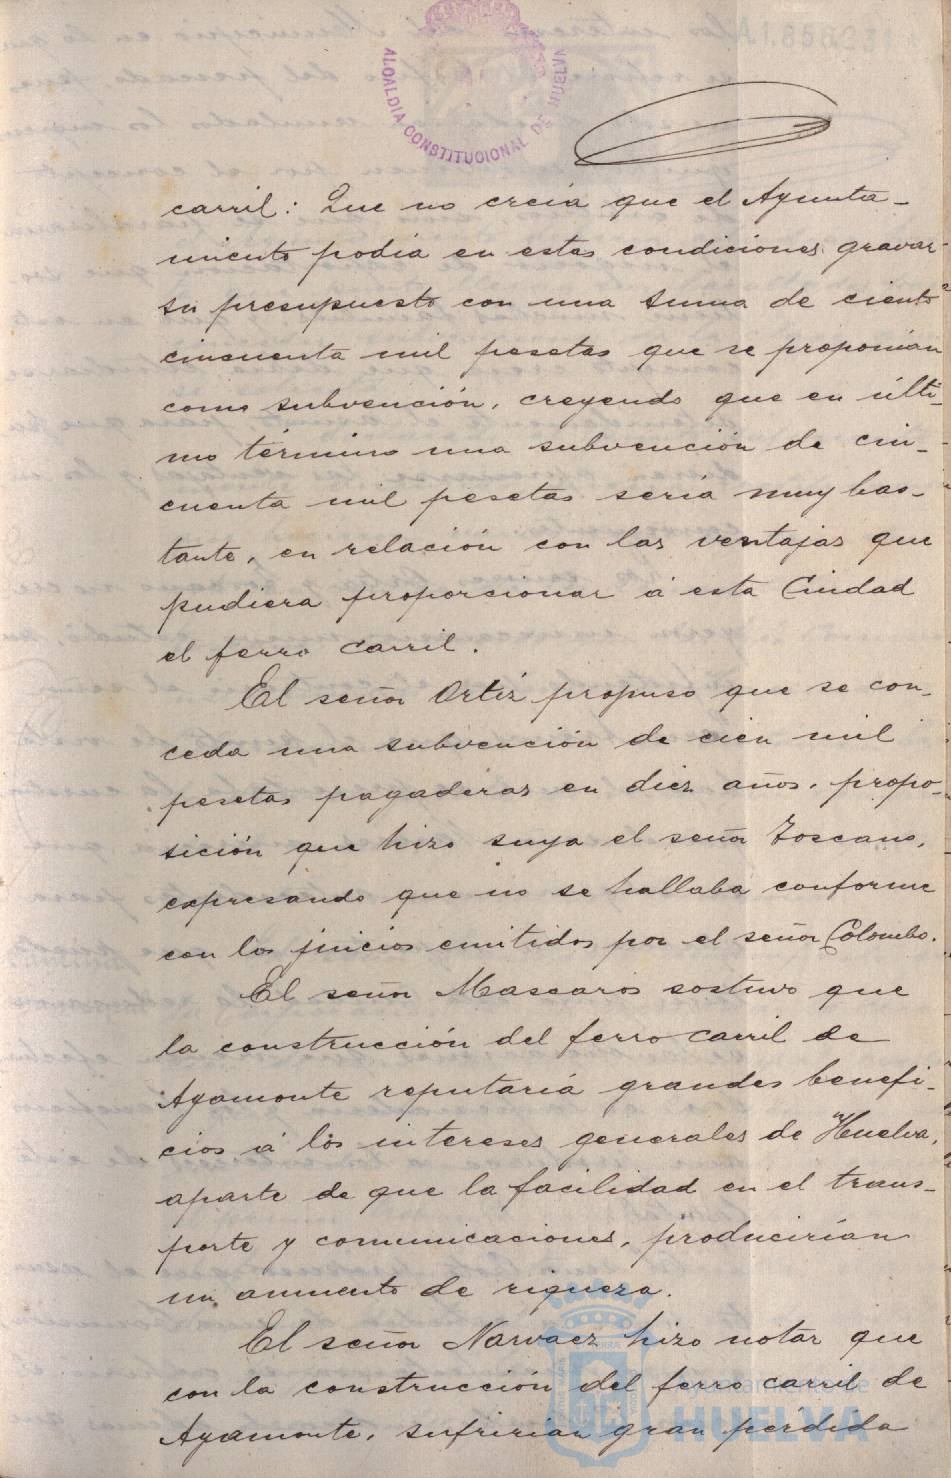 ALCALDIA CONSTITUCIONAL DE HUELVA
carril: Que no creía que el Ayunta-
miento podía en estas condiciones gravar
su presupuesto con una suma de ciento
cincuenta mil pesetas que se proponían
como subvención, creyendo que en últi-
mo término una subvención de cin-
cuenta mil pesetas sería muy bas-
tante, en relación con las ventajas que
pudiera proporcionar á esta Ciudad
el ferro carril.
El señor Ortiz propuso que se con-
ceda una subvención de cien mil
pesetas pagaderas en diez años, propo-
sición que hizo suya el señor Toscano,
expresando que no se hallaba conforme
con los juicios emitidos por el señor Colombo.
El señor Mascaros sostuvo que
la construcción del ferro carril de
Ayamonte reputaría grandes benefi-
cios á los intereses generales de Huelva,
aparte de que la facilidad en el trans-
porte y comunicaciones, producirían
un aumento de riqueza.
El señor Narvaez hizo notar que
con la construcción del ferro carril de
Ayamonte, sufrirían gran pérdida
Ayuntamiento de
HUELVA